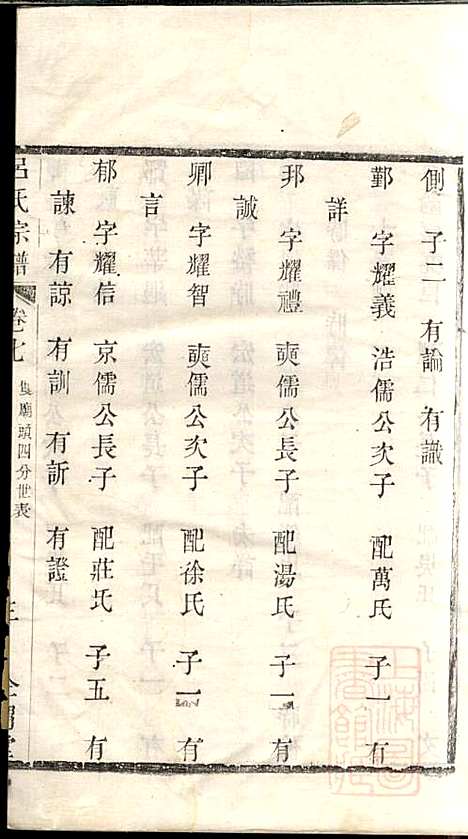 側　子二　有論　有識
鄞　字耀義　浩儒公次子　配萬氏　子一　有
詳
邦　字耀禮　奭儒公長子　配湯氏　子一　有
誠
卿　字耀智　奭儒公次子　配徐氏　子一　有
言
郁　字耀信　京儒公長子　配莊氏　子五　有
諫　有諒　有訓　有訢　有證
呂氏宗譜　卷七　廟頭四分世表
上海圖書館藏